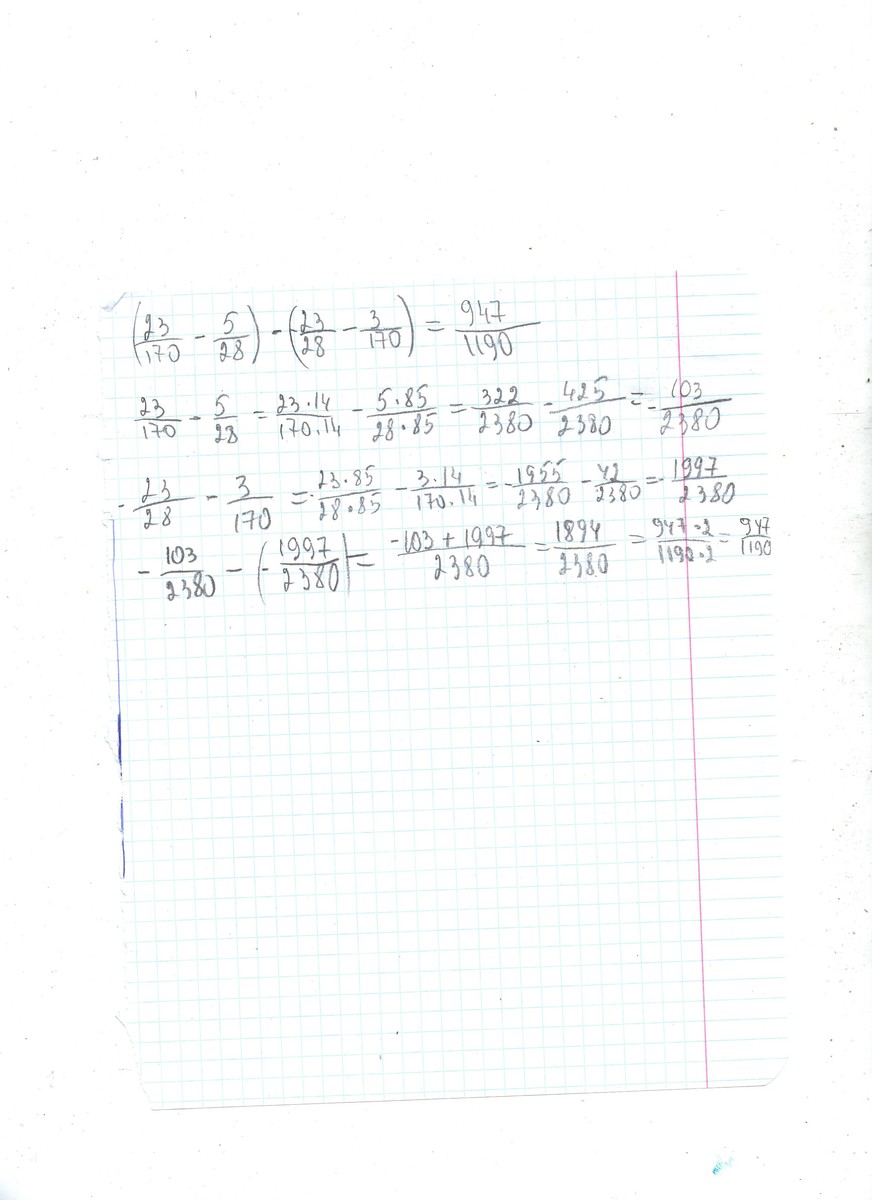 (23/170 - 5/28) - (23/28 - 3/170) = 947/1190
23/170 - 5/28 = 23·14/170·14 - 5·85/28·85 = 322/2380 - 425/2380 = -103/2380
-23/28 - 3/170 = -23·85/28·85 - 3·14/170·14 = -1955/2380 - 42/2380 = -1997/2380
-103/2380 - (-1997/2380) = -103+1997/2380 = 1894/2380 = 947·2/1190·2 = 947/1190